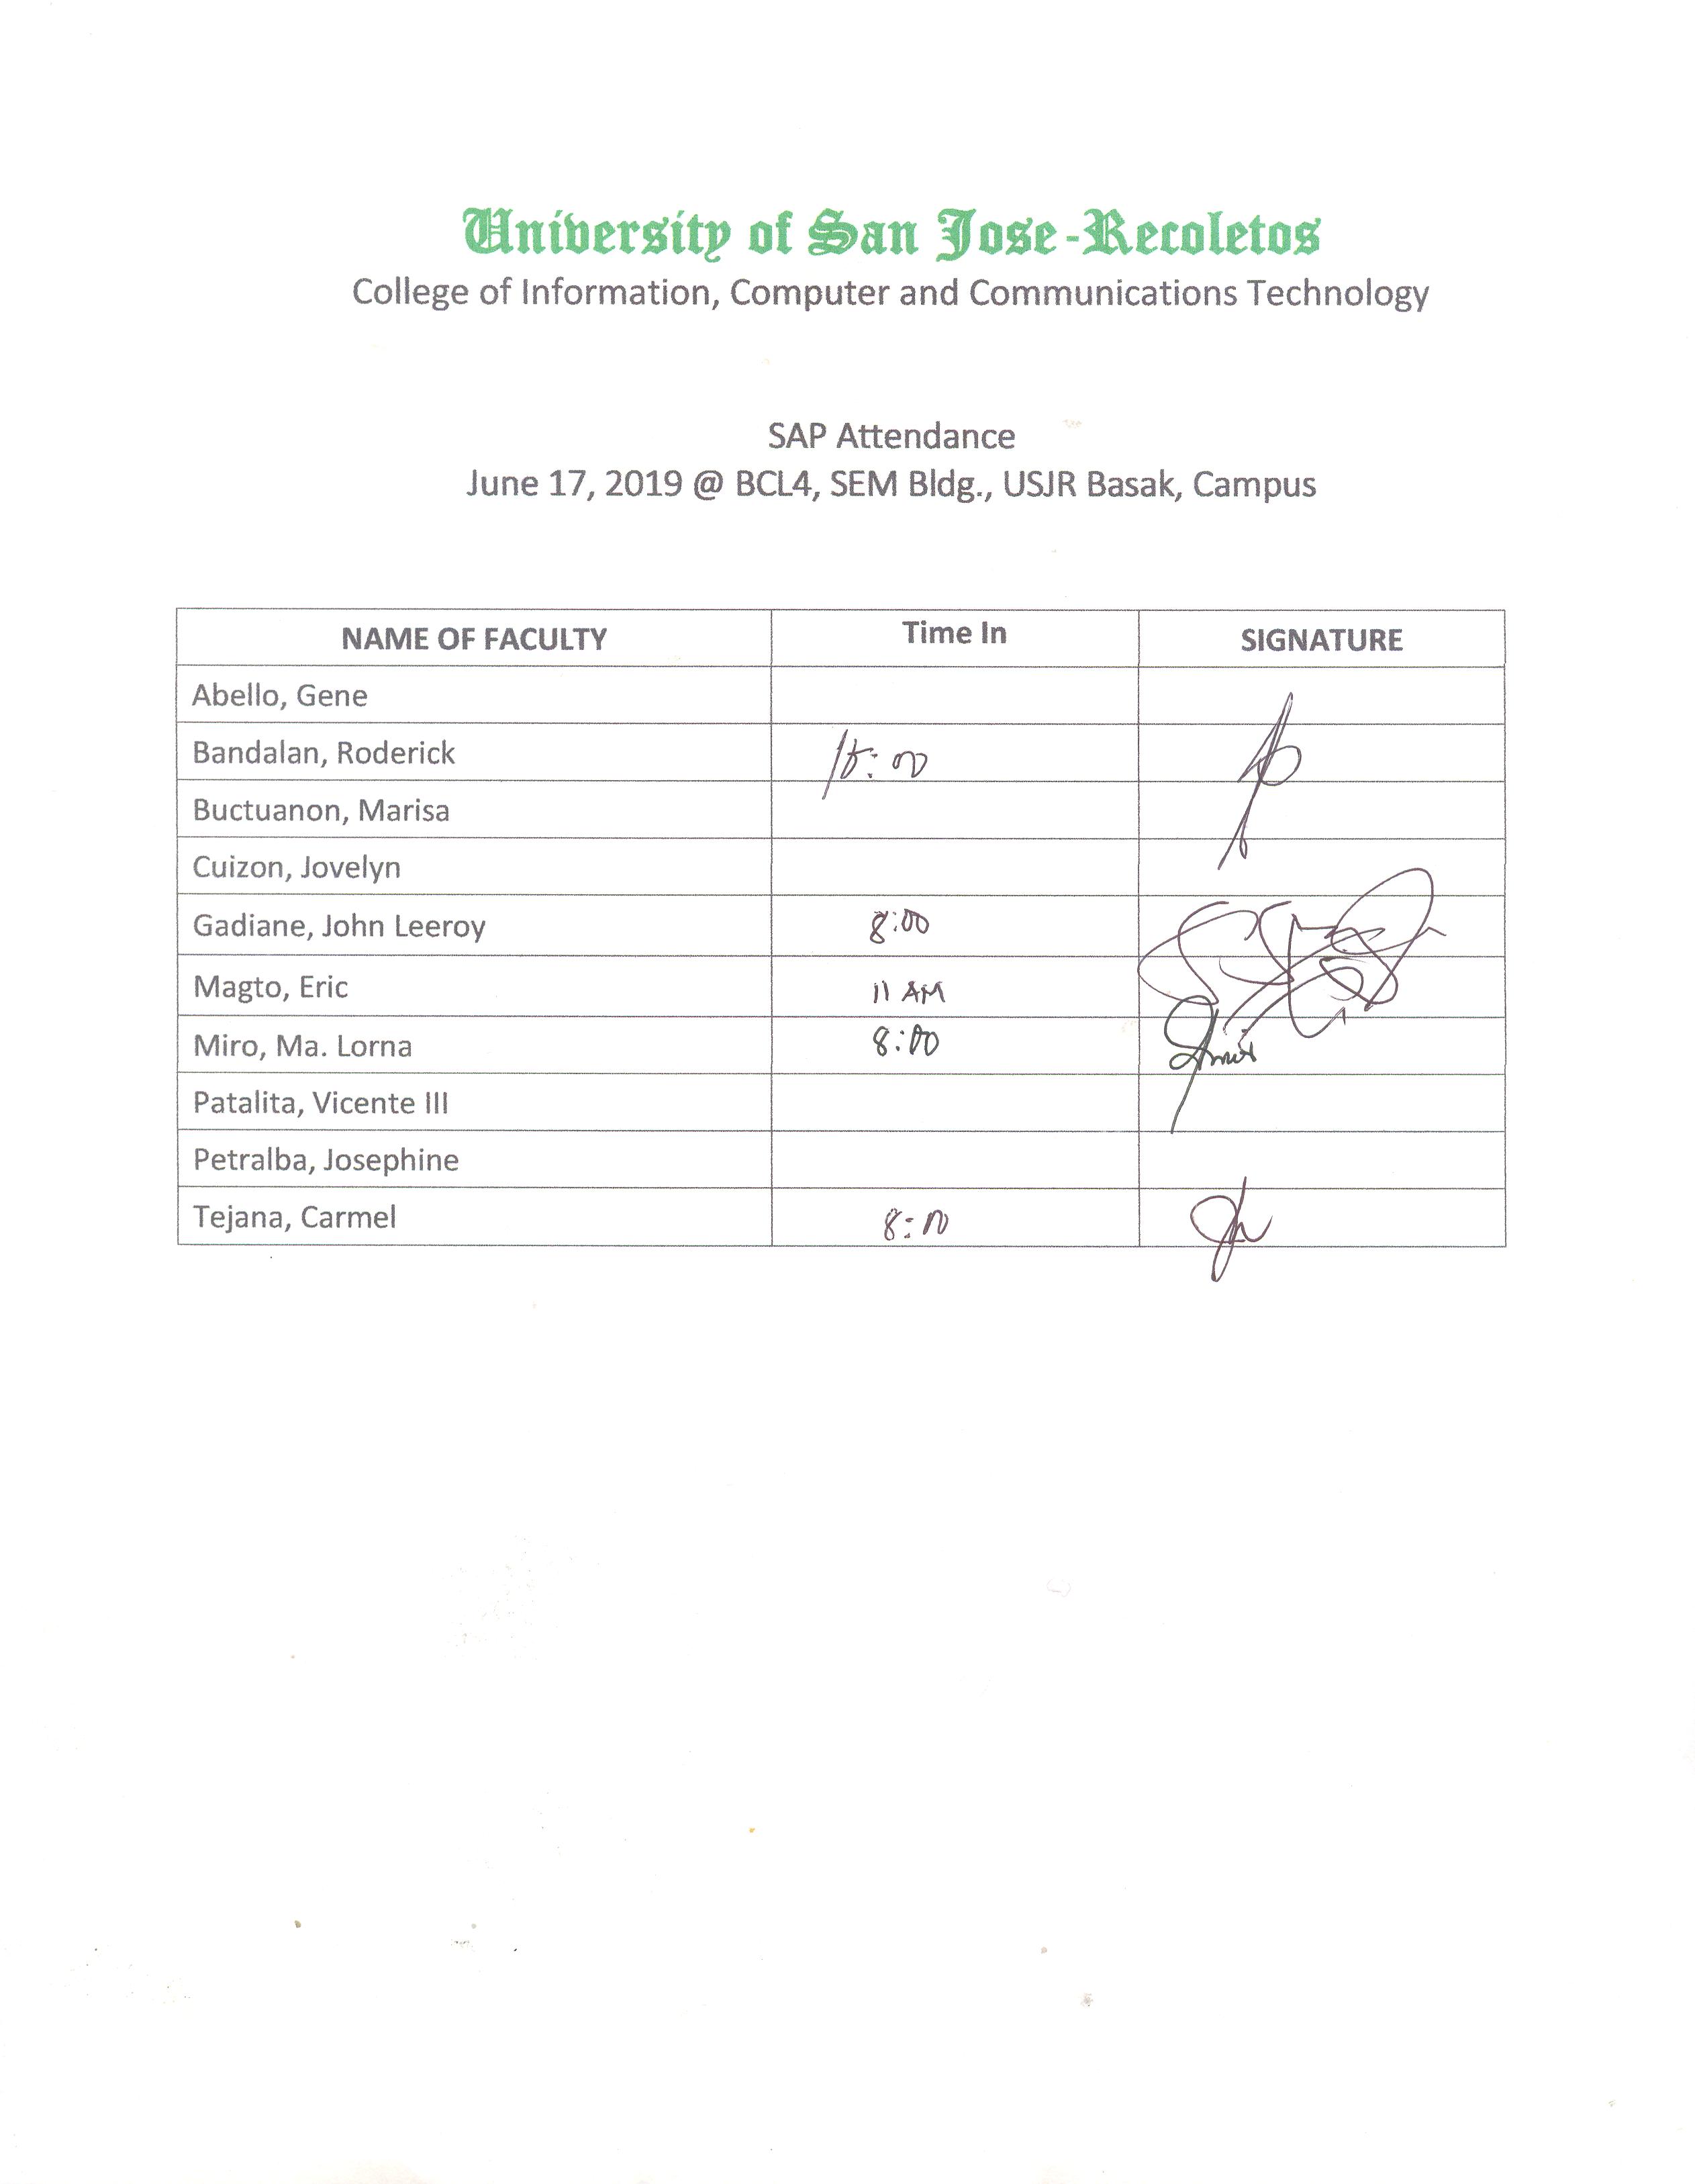 University of San Jose-Recoletos
College of Information, Computer and Communications Technology
SAP Attendance
June 17, 2019 @ BCL4, SEM Bldg., USJR Basak, Campus
NAME OF FACULTY Time In SIGNATURE
Abello, Gene
Bandalan, Roderick
Buctuanon, Marisa
Cuizon, Jovelyn
Gadiane, John Leeroy 8:00
Magto, Eric 11 AM
Miro, Ma. Lorna 8:00
Patalita, Vicente III
Petralba, Josephine
Tejana, Carmel